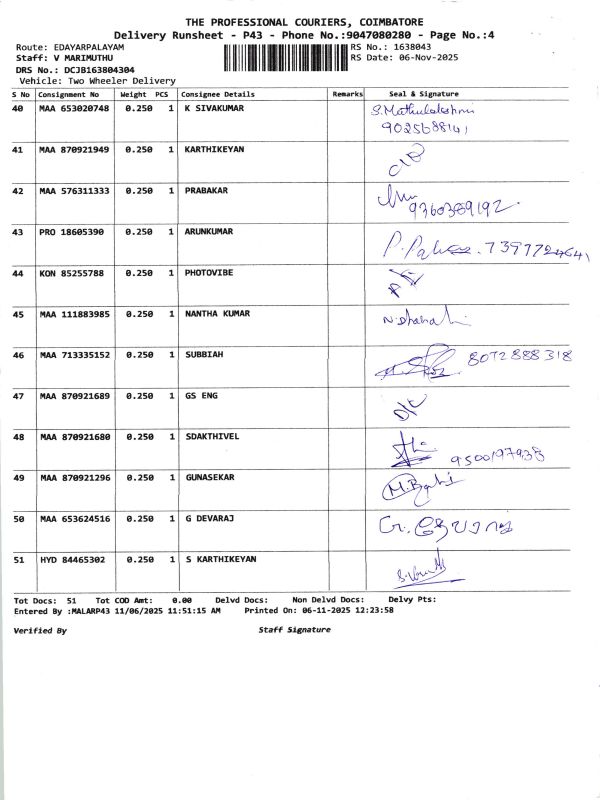 THE PROFESSIONAL COURIERS, COIMBATORE
Delivery Runsheet - P43 - Phone No.:9047080280 - Page No.:4
Route: EDAYARPALAYAM RS No.: 1638043
Staff: V MARIMUTHU RS Date: 06-Nov-2025
DRS No.: DCJB163804304
Vehicle: Two Wheeler Delivery
S No Consignment No Weight PCS Consignee Details Remarks Seal & Signature
40 MAA 653020748 0.250 1 K SIVAKUMAR S.Muthulakshmi
9025688141
41 MAA 870921949 0.250 1 KARTHIKEYAN
42 MAA 576311333 0.250 1 PRABAKAR
9360389192
43 PRO 18605390 0.250 1 ARUNKUMAR
44 KON 85255788 0.250 1 PHOTOVIBE
45 MAA 111883985 0.250 1 NANTHA KUMAR
46 MAA 713335152 0.250 1 SUBBIAH 8072888318
47 MAA 870921689 0.250 1 GS ENG
48 MAA 870921680 0.250 1 SDAKTHIVEL
9500197938
49 MAA 870921296 0.250 1 GUNASEKAR
50 MAA 653624516 0.250 1 G DEVARAJ
51 HYD 84465302 0.250 1 S KARTHIKEYAN
Tot Docs: 51 Tot COD Amt: 0.00 Delvd Docs: Non Delvd Docs: Delvy Pts:
Entered By :MALARP43 11/06/2025 11:51:15 AM Printed On: 06-11-2025 12:23:58
Verified By Staff Signature